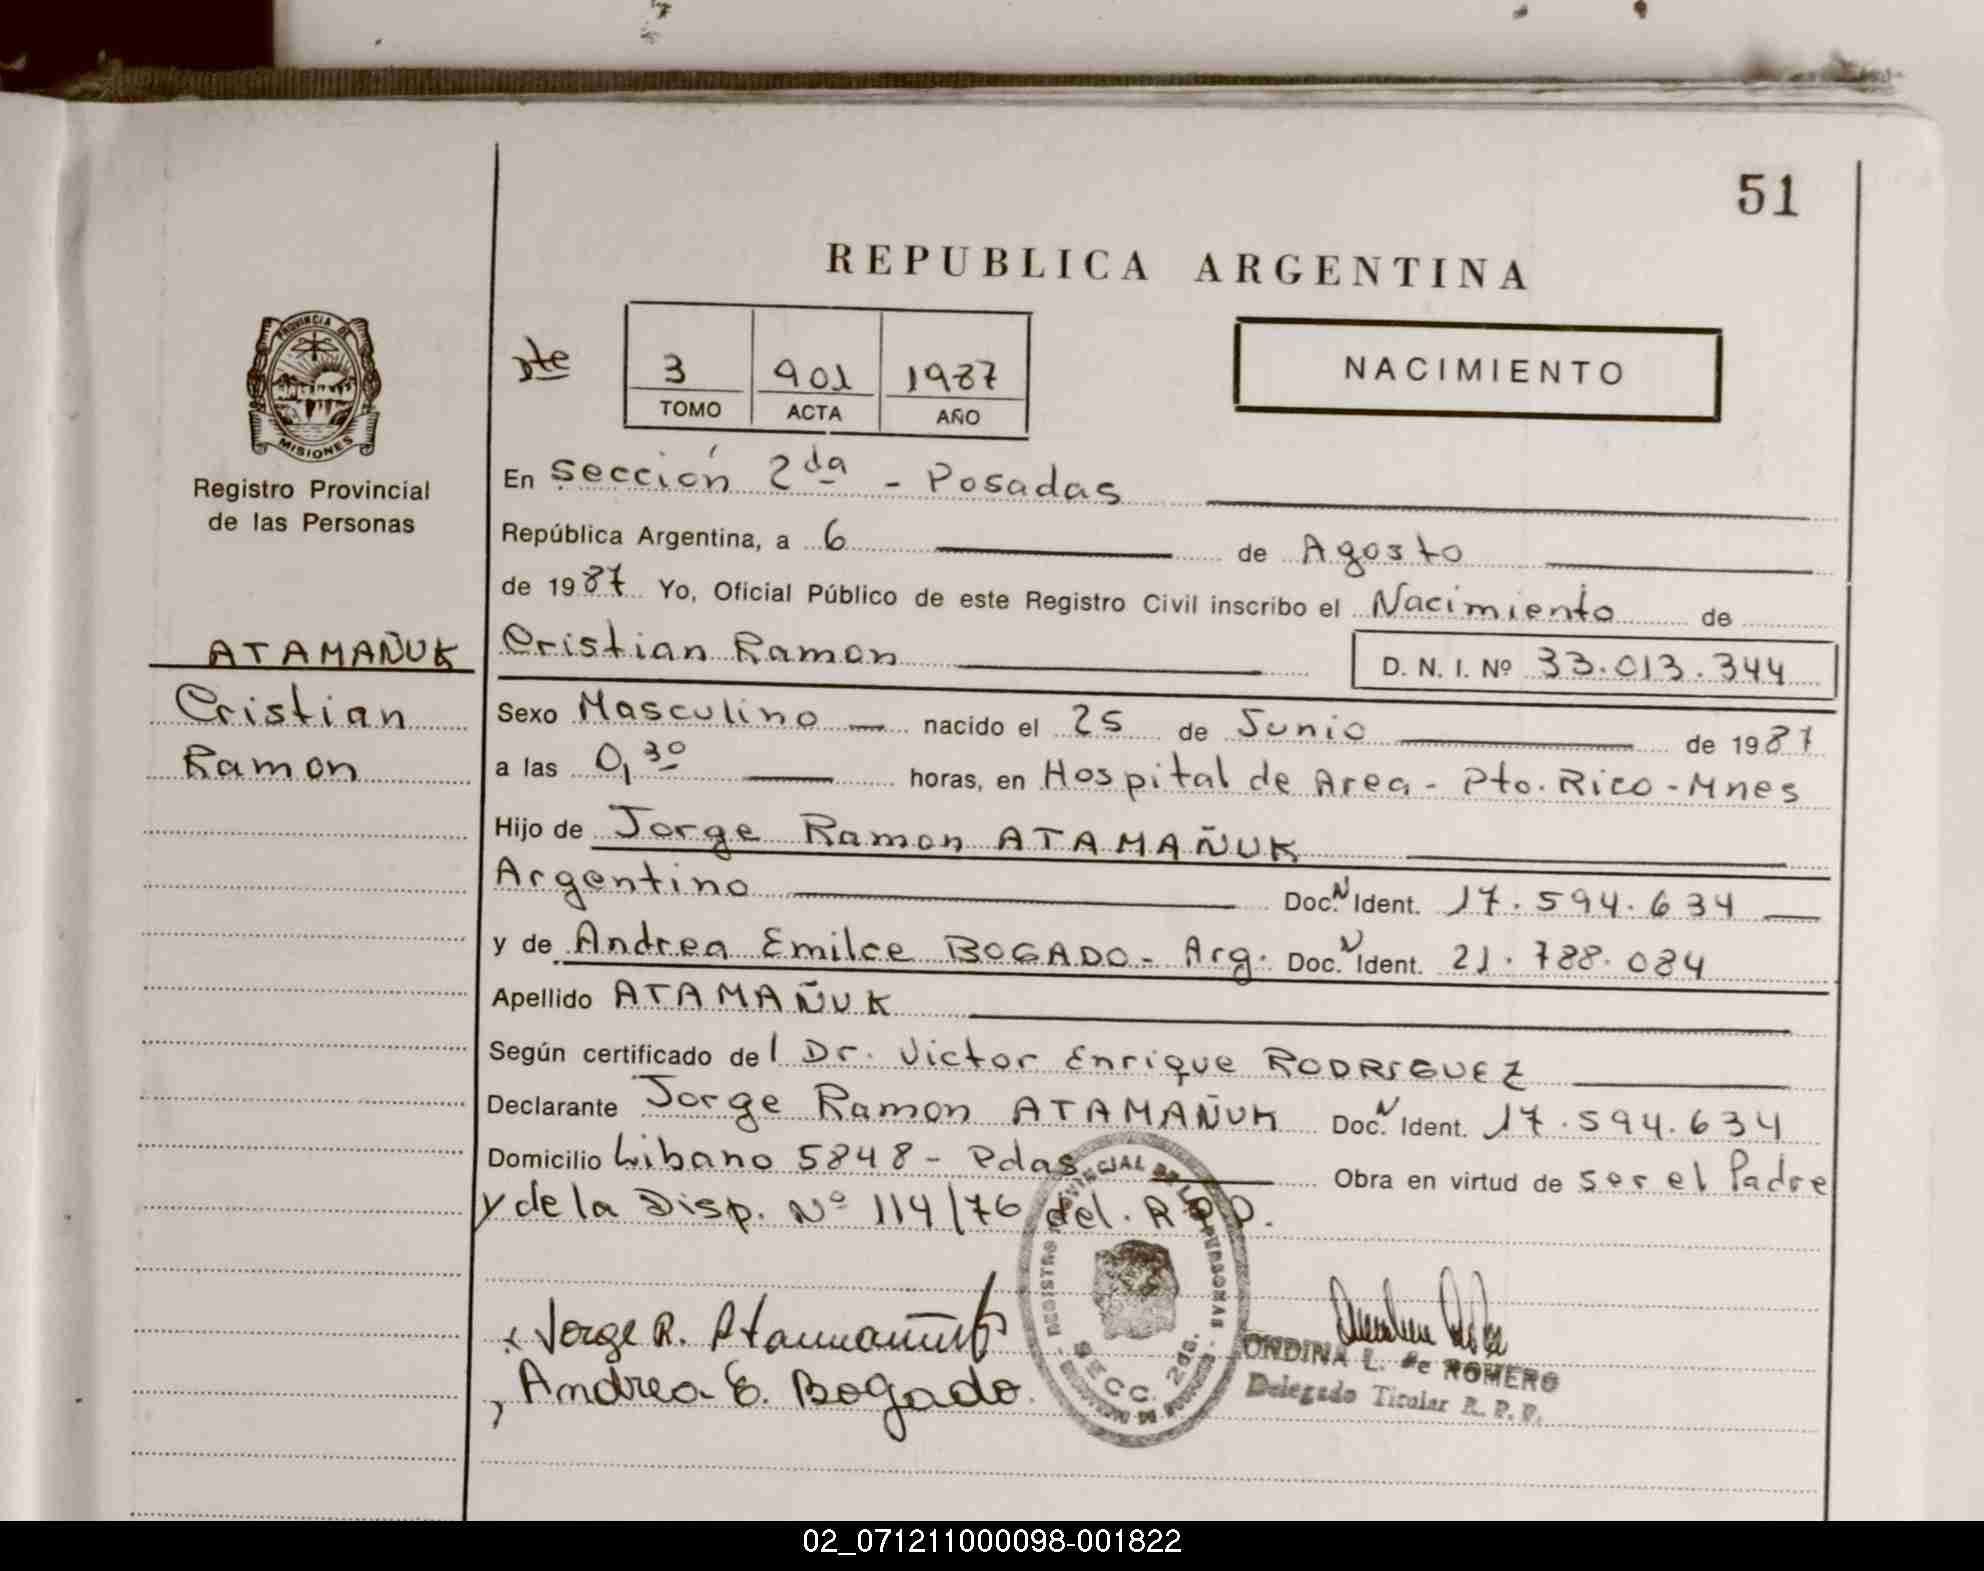 51
REPUBLICA ARGENTINA
PROVINCIA DE
MISIONES
Registro Provincial
de las Personas
Dte
3 401 1987
TOMO ACTA AÑO
NACIMIENTO
En Sección 2da - Posadas
República Argentina, a 6 de Agosto
de 1987 Yo, Oficial Público de este Registro Civil inscribo el Nacimiento de
ATAMAÑUK
Cristian
Ramon
Cristian Ramon D. N. I. Nº 33.013.344
Sexo Masculino nacido el 25 de Junio de 1987
a las 0,30 horas, en Hospital de Area - Pto. Rico - Mnes
Hijo de Jorge Ramon ATAMAÑUK
Argentino Doc. N Ident. 17.594.634
y de Andrea Emilce BOGADO - Arg. Doc. N Ident. 21.788.084
Apellido ATAMAÑUK
Según certificado del Dr. Victor Enrique RODRIGUEZ
Declarante Jorge Ramon ATAMAÑUK Doc. N Ident. 17.594.634
Domicilio Libano 5848 - Pdas Obra en virtud de ser el Padre
y de la Disp. Nº 114/76 del. R.P.P.
Jorge R. Atamañuk
Andrea E. Bogado
SECC. 2da.
ONDINA L. de ROMERO
Delegado Titular R. P. P.
02_071211000098-001822